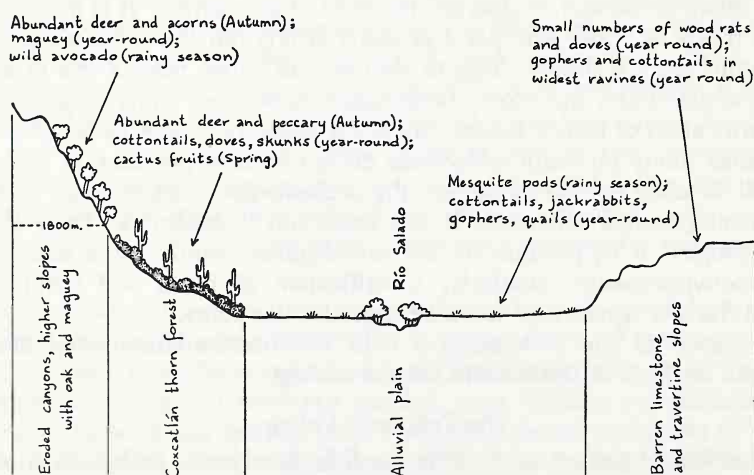 Abundant deer and acorns (Autumn);
maguey (year-round);
wild avocado (rainy season)
Small numbers of wood rats
and doves (year round);
gophers and cottontails in
widest ravines (year round)
Abundant deer and peccary (Autumn);
cottontails, doves, skunks (year-round);
cactus fruits (Spring)
Mesquite pods (rainy season);
cottontails, jackrabbits,
gophers, quails (year-round)
1800m.
Río Salado
Eroded canyons, higher slopes
with oak and maguey
Coxcatlán thorn forest
Alluvial plain
Barren limestone
and travertine slopes